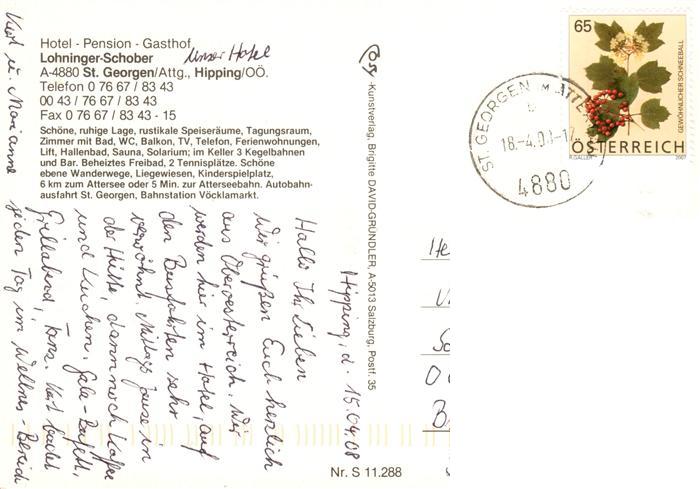 Hotel - Pension - Gasthof
Lohninger-Schober
unser Hotel
A-4880 St. Georgen/Attg., Hipping/OÖ.
Telefon 0 76 67 / 83 43
00 43 / 76 67 / 83 43
Fax 0 76 67 / 83 43 - 15
Schöne, ruhige Lage, rustikale Speiseräume, Tagungsraum,
Zimmer mit Bad, WC, Balkon, TV, Telefon, Ferienwohnungen,
Lift, Hallenbad, Sauna, Solarium; im Keller 3 Kegelbahnen
und Bar. Beheiztes Freibad, 2 Tennisplätze. Schöne
ebene Wanderwege, Liegewiesen, Kinderspielplatz,
6 km zum Attersee oder 5 Min. zur Atterseebahn. Autobahn-
ausfahrt St. Georgen, Bahnstation Vöcklamarkt.
Hipping, d. 15.04.08
Hallo Ihr Lieben
Wir grüßen Euch herzlich
aus Oberoesterreich. Wir
werden hier im Hotel, auf
den Busfahrten sehr
verwöhnt. Mittags Jause in
der Hütte, dann noch Kaffee
und Kuchen. Gala-Bufett,
Grillabend, Tanz. Kurt badet
jeden Tag im Wellnes-Bereich
Kurt u. Marianne
-Kunstverlag, Brigitte DAVID-GRÜNDLER, A-5013 Salzburg, Postf. 35
Nr. S 11.288
65
GEWÖHNLICHER SCHNEEBALL
ÖSTERREICH
R.GALLER
2007
ST. GEORGEN IM ATTE
b
18.-4.08-17
4880